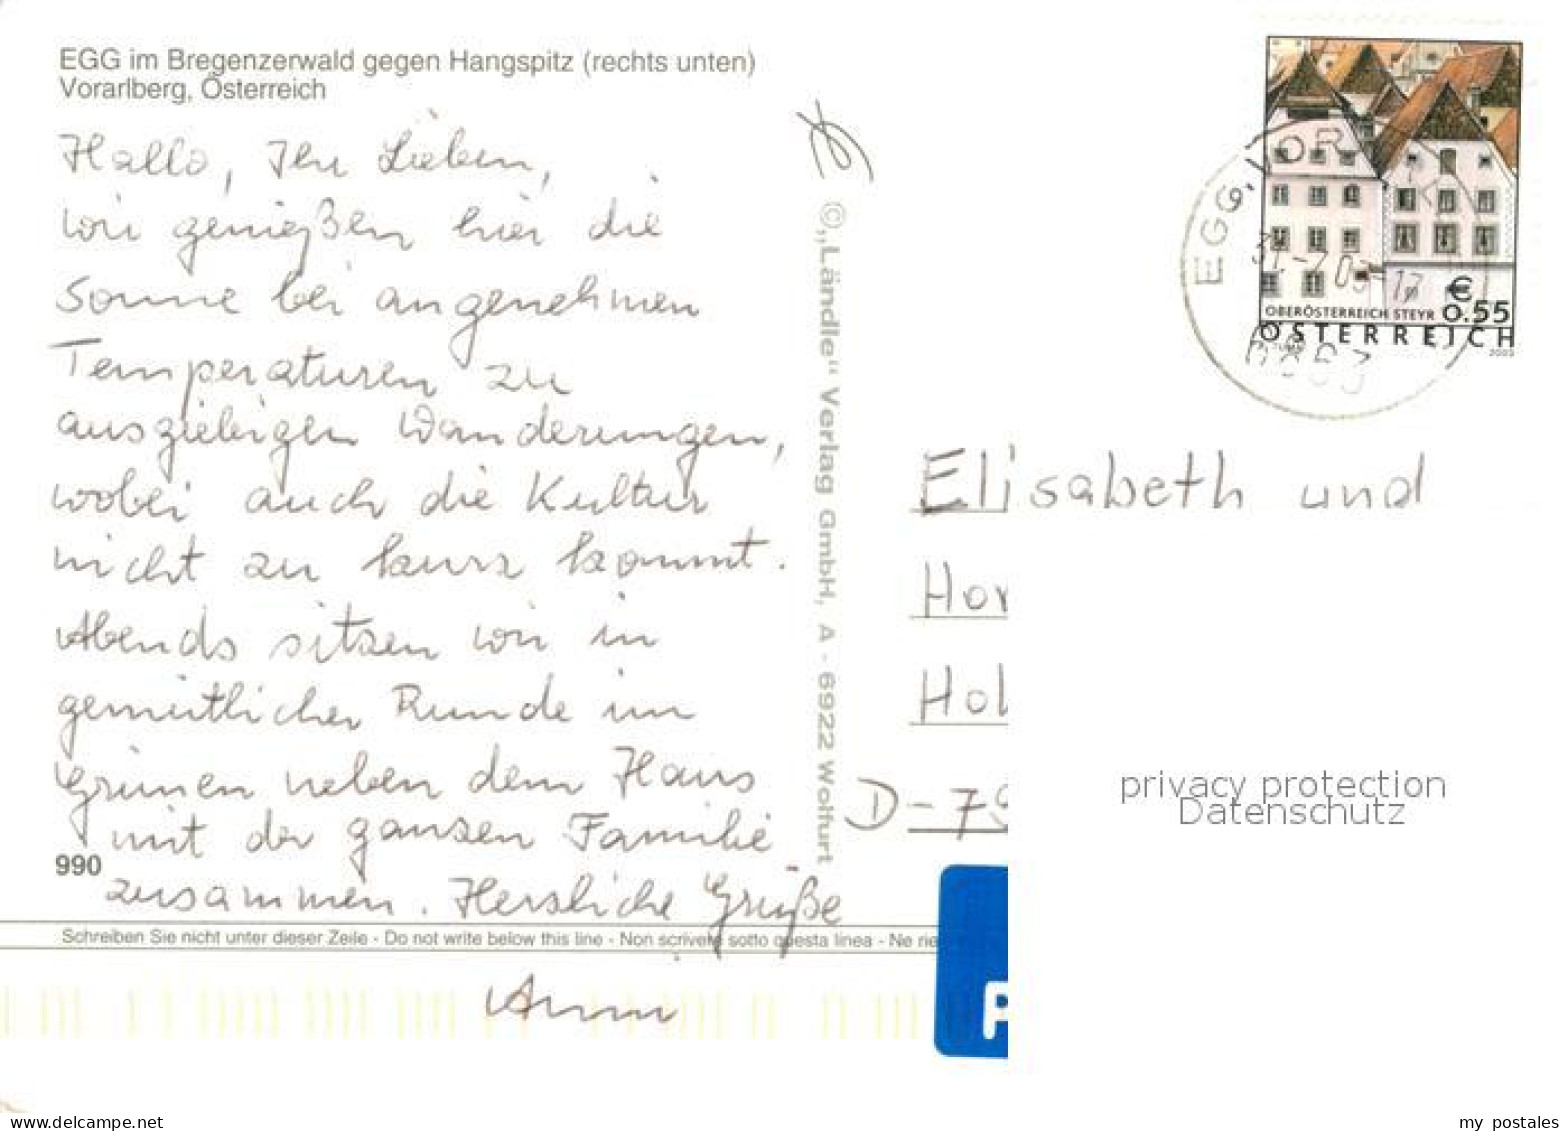 EGG im Bregenzerwald gegen Hangspitz (rechts unten)
Vorarlberg, Österreich
Hallo, Ihr Lieben,
wir genießen hier die
Sonne bei angenehmen
Temperaturen zu
ausgiebigen Wanderungen,
wobei auch die Kultur
nicht zu kurz kommt.
Abends sitzen wir in
gemütlicher Runde im
Grünen neben dem Haus
mit der ganzen Familie
990
zusammen. Herzliche Grüße
Schreiben Sie nicht unter dieser Zeile - Do not write below this line - Non scrivere sotto questa linea - Ne rie
Anni
©„Ländle“ Verlag GmbH, A - 6922 Wolfurt
OBERÖSTERREICH STEYR
€ 0.55
ÖSTERREICH
2003
EGG, VOR
6863
Elisabeth und
Hor
Hol
D-79
privacy protection
Datenschutz
P
www.delcampe.net
my_postales